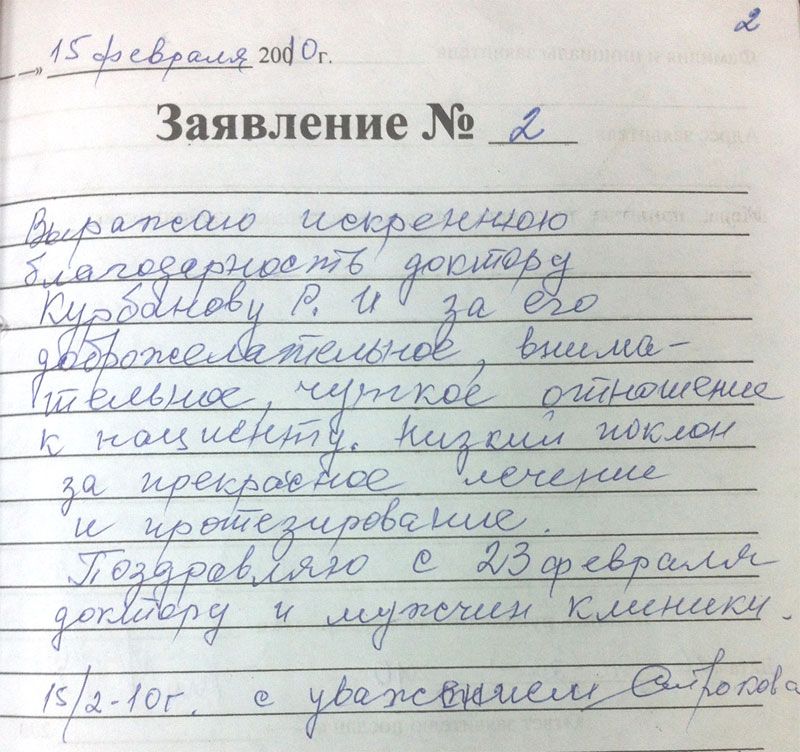 2
15 февраля 2010г.
Заявление № 2
Выражаю искреннюю
благодарность доктору
Курбанову Р. И за его
доброжелательное, внима-
тельное, чуткое отношение
к пациенту. Низкий поклон
за прекрасное лечение
и протезирование.
Поздравляю с 23 февраля
доктору и мужчин клиники.
15/2-10г. с уважением